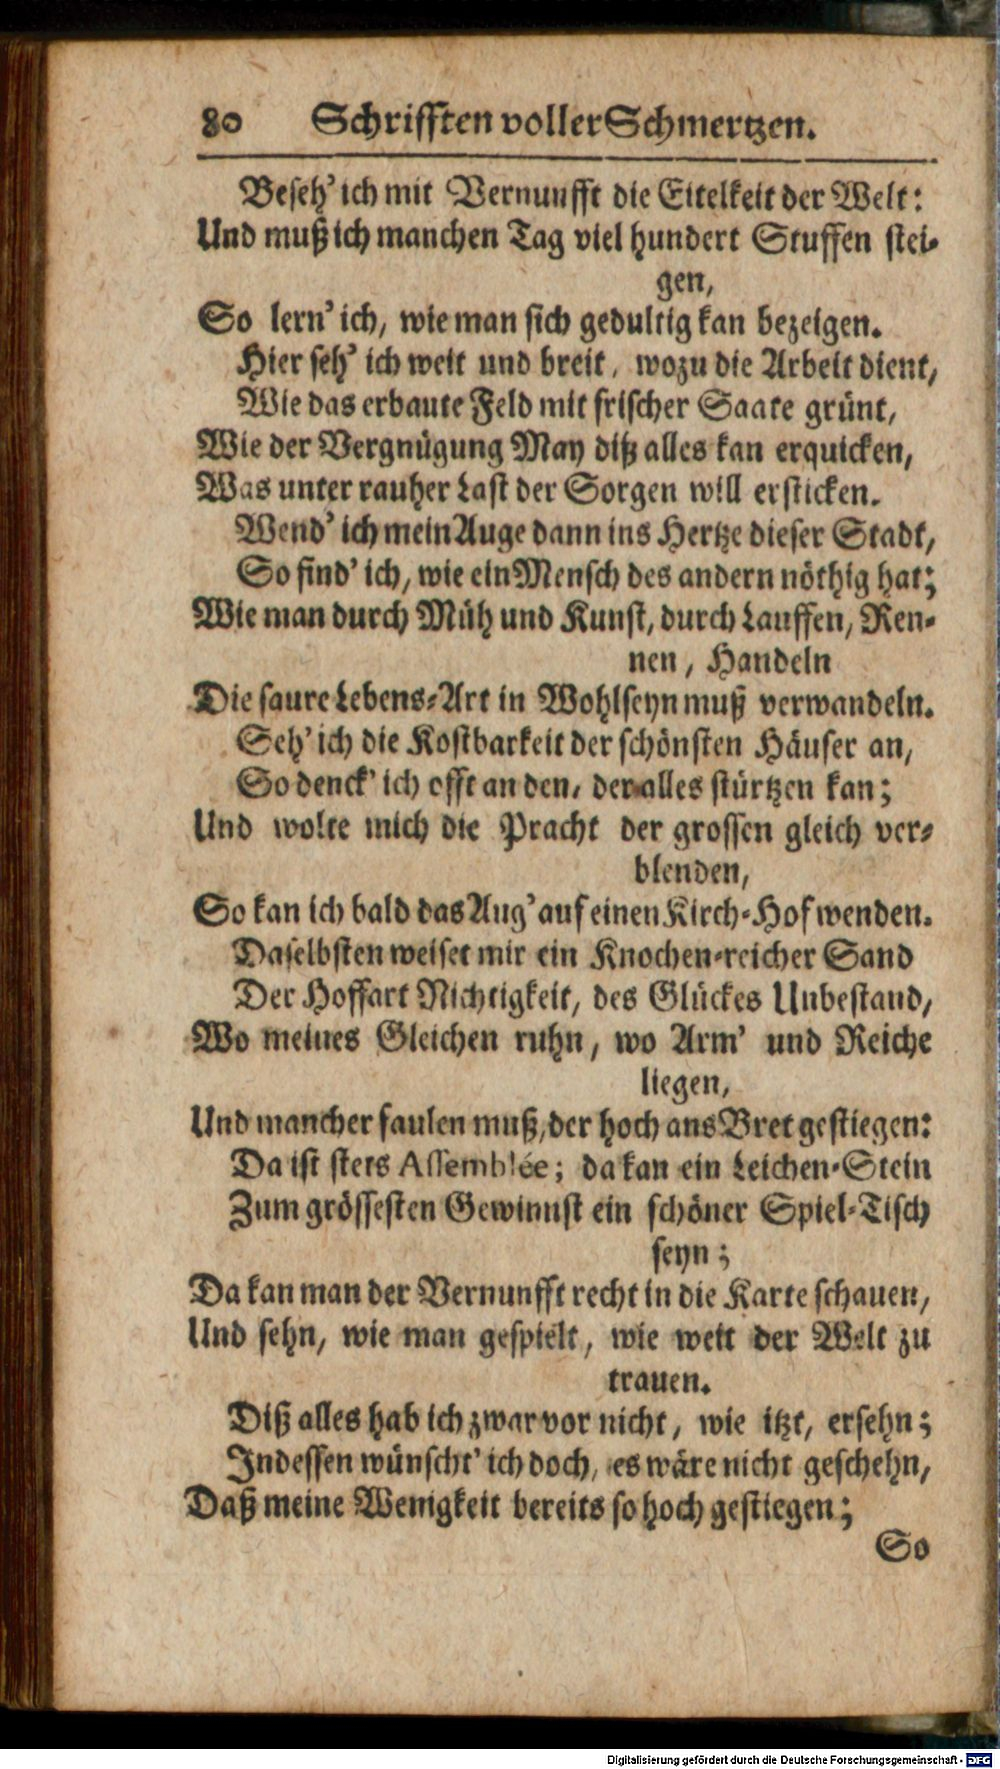 80 Schrifften voller Schmertzen.
Beseh' ich mit Vernunfft die Eitelkeit der Welt:
Und muß ich manchen Tag viel hundert Stuffen stei-
gen,
So lern' ich, wie man sich gedultig kan bezeigen.
Hier seh' ich weit und breit, wozu die Arbeit dient,
Wie das erbaute Feld mit frischer Saate grünt,
Wie der Vergnügung May diß alles kan erquicken,
Was unter rauher Last der Sorgen will ersticken.
Wend' ich mein Auge dann ins Hertze dieser Stadt,
So find' ich, wie ein Mensch des andern nöthig hat;
Wie man durch Müh und Kunst, durch Lauffen, Ren-
nen, Handeln
Die saure Lebens-Art in Wohlseyn muß verwandeln.
Seh' ich die Kostbarkeit der schönsten Häuser an,
So denck' ich offt an den, der alles stürtzen kan;
Und wolte mich die Pracht der grossen gleich ver-
blenden,
So kan ich bald das Aug' auf einen Kirch-Hof wenden.
Daselbsten weiset mir ein Knochen-reicher Sand
Der Hoffart Nichtigkeit, des Glückes Unbestand,
Wo meines Gleichen ruhn, wo Arm' und Reiche
liegen,
Und mancher faulen muß, der hoch ans Bret gestiegen:
Da ist stets Assemblée; da kan ein Leichen-Stein
Zum grössesten Gewinnst ein schöner Spiel-Tisch
seyn;
Da kan man der Vernunfft recht in die Karte schauen,
Und sehn, wie man gespielt, wie weit der Welt zu
trauen.
Diß alles hab ich zwar vor nicht, wie itzt, ersehn;
Indessen wünscht' ich doch, es wäre nicht geschehn,
Daß meine Wenigkeit bereits so hoch gestiegen;
So
Digitalisierung gefördert durch die Deutsche Forschungsgemeinschaft - DFG